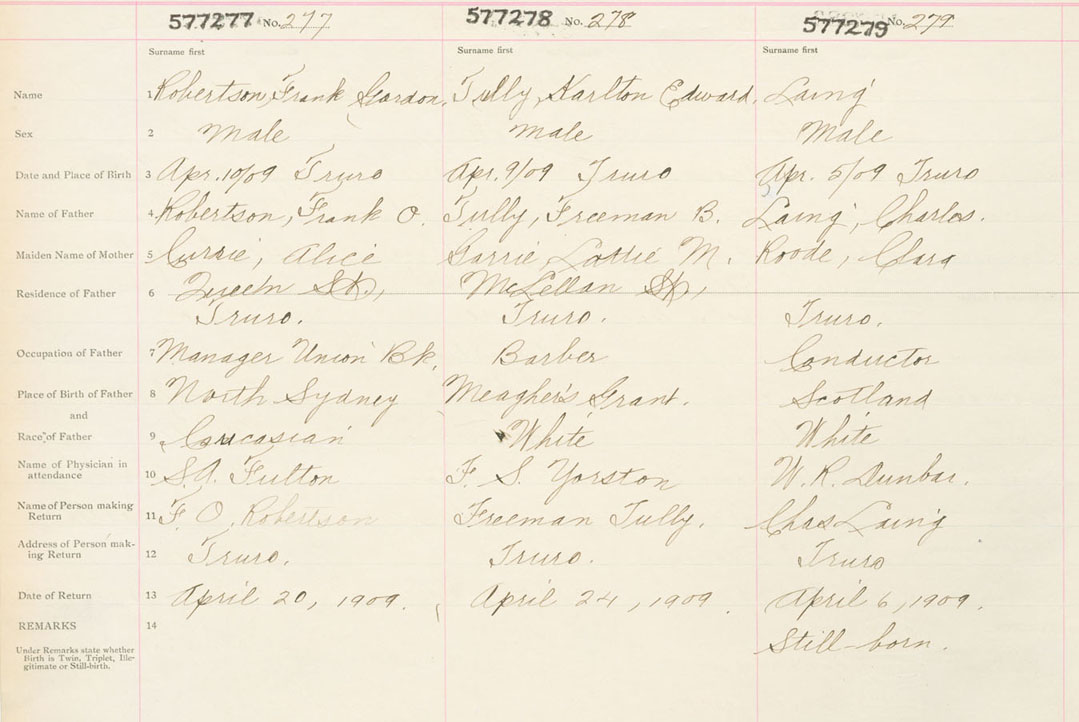 577277 No. 277 577278 No. 278 577279 No. 279
Surname first Surname first Surname first
Name 1 Robertson, Frank Gordon. Tully, Karlton Edward. Laing
Sex 2 Male Male Male
Date and Place of Birth 3 Apr. 10/09 Truro Apr. 9/09 Truro Apr. 5/09 Truro
Name of Father 4 Robertson, Frank O. Tully, Freeman B. Laing, Charles.
Maiden Name of Mother 5 Currie, Alice Garrie, Lottie M. Roode, Clara
Residence of Father 6 Queen St., McLellan St.,
Truro. Truro. Truro.
Occupation of Father 7 Manager Union Bk. Barber Conductor
Place of Birth of Father 8 North Sydney Meagher's Grant. Scotland
and
Race of Father 9 Caucasian White White
Name of Physician in
attendance 10 S.A. Fulton F. S. Yorston W. R. Dunbar.
Name of Person making
Return 11 F. O. Robertson Freeman Tully. Chas Laing
Address of Person mak-
ing Return 12 Truro. Truro. Truro
Date of Return 13 April 20, 1909. April 24, 1909. April 6, 1909.
REMARKS 14
Still-born.
Under Remarks state whether
Birth is Twin, Triplet, Ille-
gitimate or Still-birth.